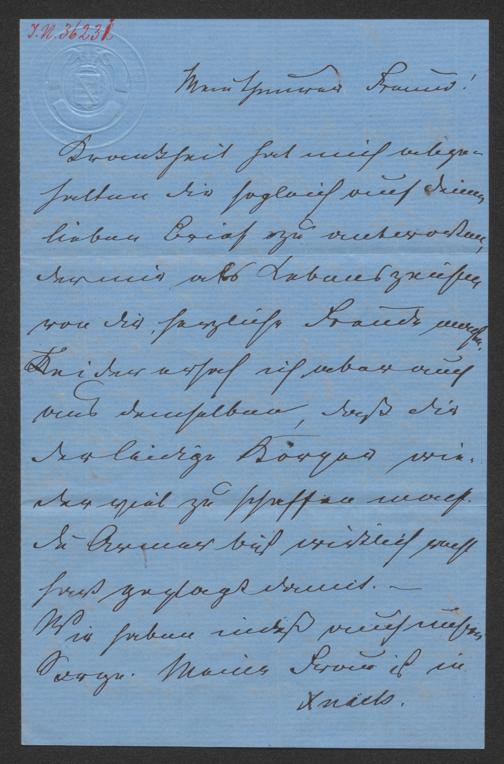 J.N. 36232
Mein theurer Freund!
Krankheit hat mich abge-
halten dir sogleich auf deinen
lieben Brief zu antworten,
der mir als Lebenszeichen
von dir, herzliche Freude machte.
Leider ersah ich aber auch
aus demselben, daß dir
der leidige Körper wie-
der viel zu schaffen macht.
Du Armer bist wirklich recht
hart geplagt damit. —
Wir haben indeß auch unsere
Sorge. Meine Frau ist in